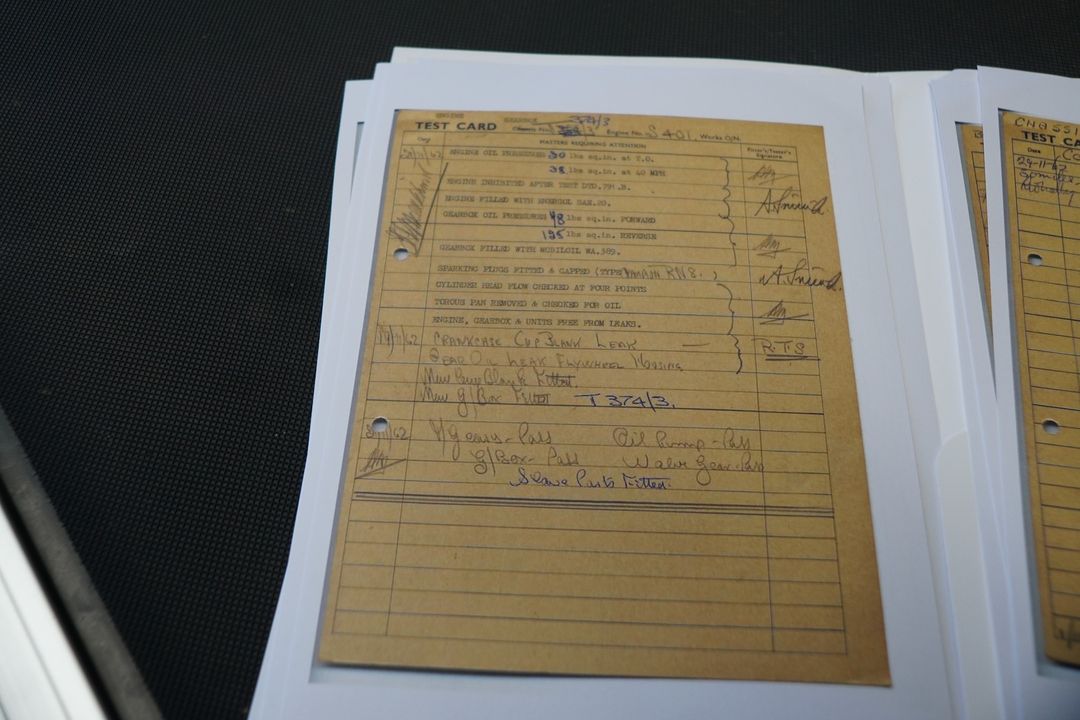 ENGINE GEARBOX 374/3
TEST CARD Chassis No. /3 Engine No. S 401. Works O/N.
Date MATTERS REQUIRING ATTENTION Fitter's/Tester's Signature
ENGINE OIL PRESSURES 50 lbs sq.in. at T.O.
38 lbs sq.in. at 40 MPH
ENGINE INHIBITED AFTER TEST DTD.791.B.
ENGINE FILLED WITH ENERGOL SAE.20.
GEARBOX OIL PRESSURES 48 lbs sq.in. FORWARD
195 lbs sq.in. REVERSE
GEARBOX FILLED WITH MOBILOIL WA.389.
SPARKING PLUGS FITTED & GAPPED (TYPE RN8.)
CYLINDER HEAD FLOW CHECKED AT FOUR POINTS
TOROUS PAN REMOVED & CHECKED FOR OIL
ENGINE, GEARBOX & UNITS FREE FROM LEAKS.
/11/62 CRANKCASE CUP BLANK LEAK — R.T.S
REAR OIL LEAK FLYWHEEL HOUSING
New Cup Blank Fitted.
New G/Box Fitted T 374/3.
/11/62 T/Gears - Pass Oil Pump - Pass
G/Box - Pass Valve Gear - Pass
Slave Parts Fitted.
CHASSI
TEST CA
Date
29-11-62